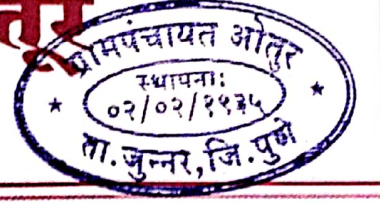 तूर
ग्रामपंचायत ओतुर
स्थापना:
०२/०२/१९३५
ता. जुन्नर, जि. पुणे